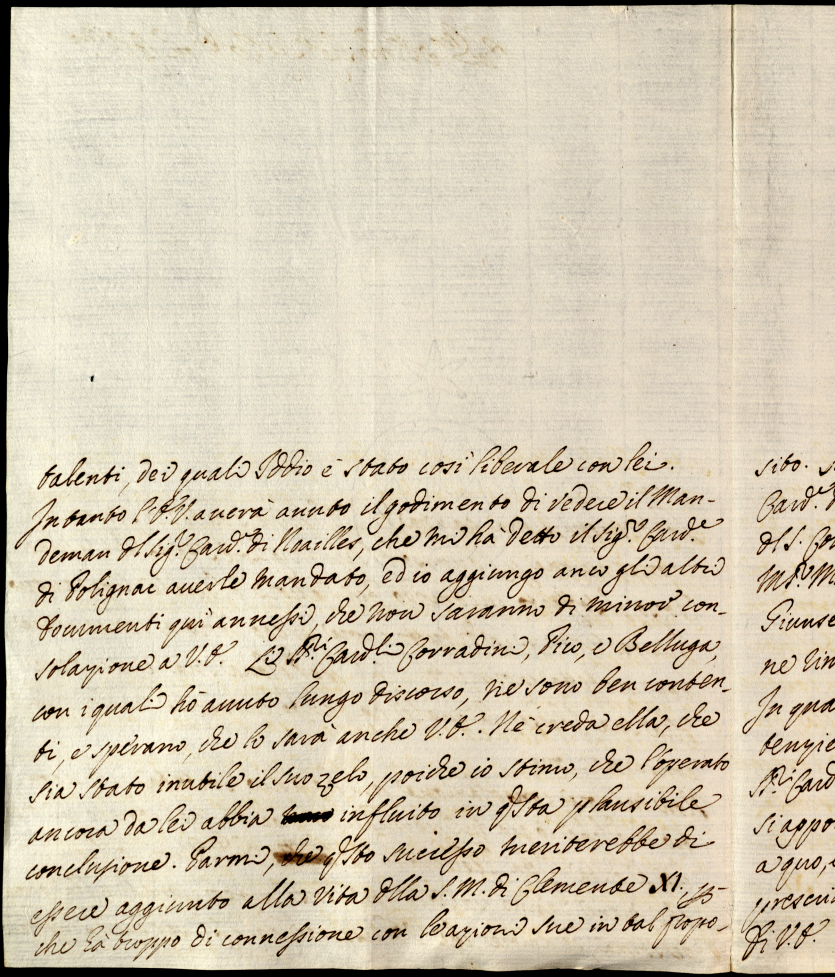 talenti, dei quali Iddio è stato così liberale con lei.
Intanto l'V.E. averà avuto il godimento di vedere il Man-
demau dl Sigr. Card.e di Noailles, che mi hà detto il Sigr. Card.e
di Polignac averle mandato, ed io aggiungo anco gli altri
documenti quì annessi, che non saranno di minor con-
solazione a V.E. Li SS.ri Card.li Corradini, Pico, e Belluga,
con i quali hò avuto lungo discorso, ne sono ben conten-
ti, e sperano, che lo sarà anche V.E. Nè creda ella, che
sia stato inutile il suo zelo, poiche io stimo, che l'operato
ancora da lei abbia influito in qsta plausibile
conclusione. Parmi, che qsto successo meriterebbe di
essere aggiunto alla Vita dlla S.M. di Clemente XI.
che hà troppo di connessione con le azioni sue in tal propo-
sito.
Card.e
dl S.
Giunse
ne
In qua
SS.ri Card
si appo
a quo,
di V.E.